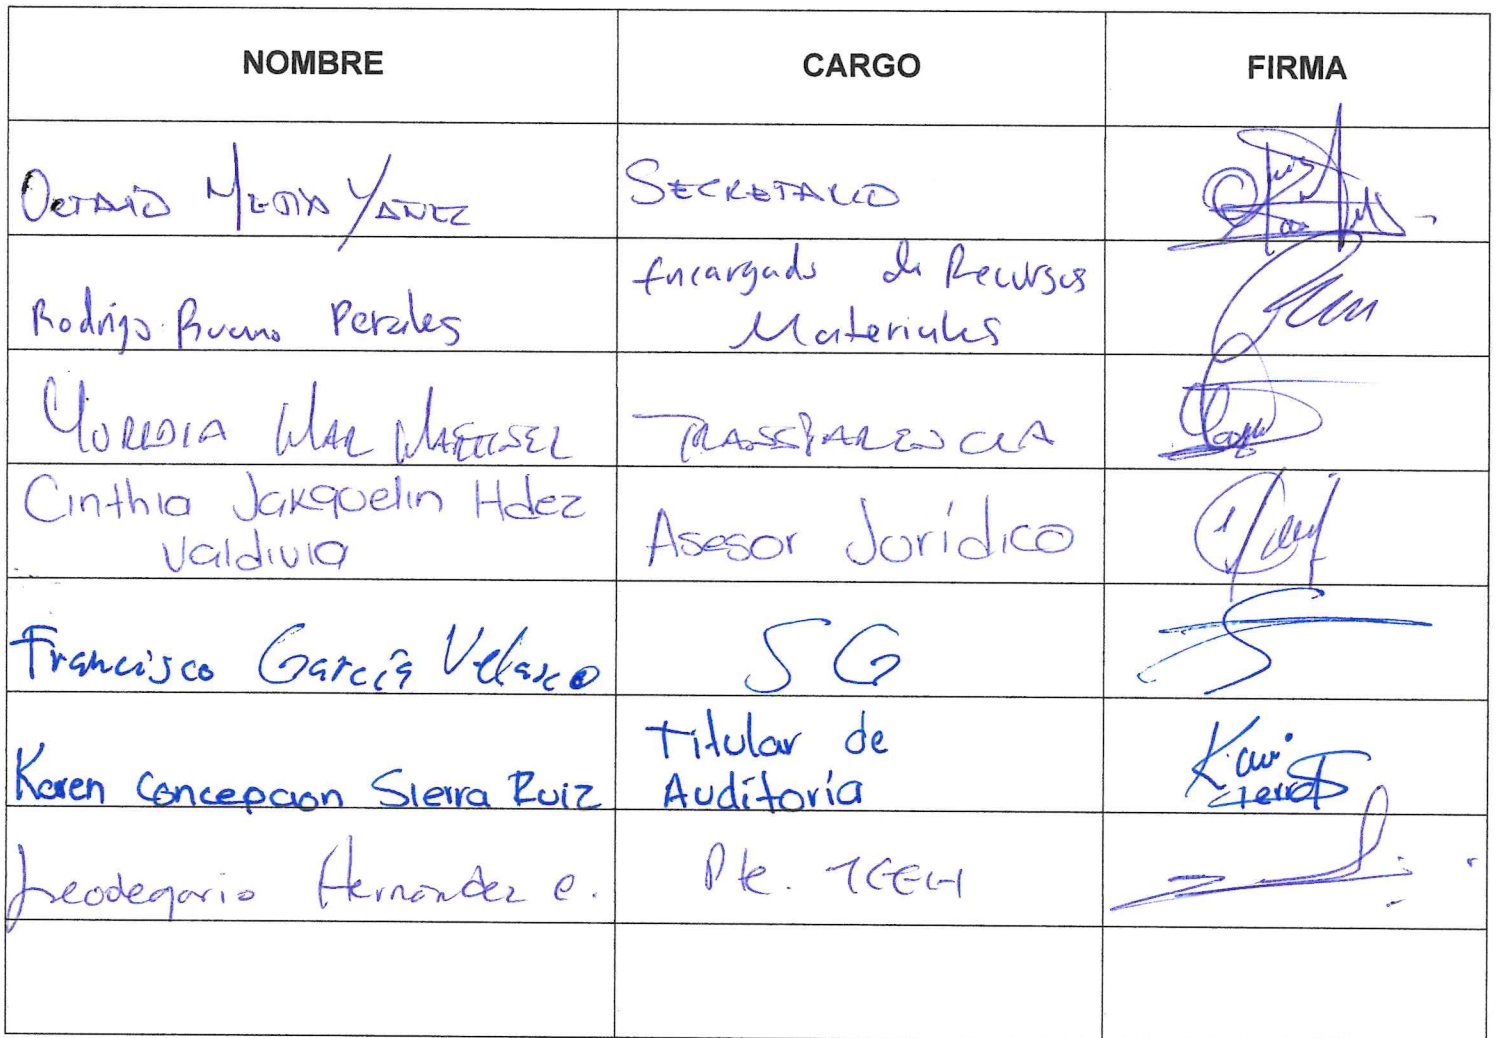 NOMBRE CARGO FIRMA
Octavio Mejia Yañez SECRETARIO
Rodrigo Bueno Perales Encargado de Recursos
Materiales
MAR TRANSPARENCIA
Cinthia Jakquelin Hdez
Valdivia
Asesor Jurídico
Francisco García Velasco SG
Karen Concepcion Sierra Ruiz
Titular de
Auditoría
Karen
Sierra
Leodegario Hernández C. Pte. TEEH